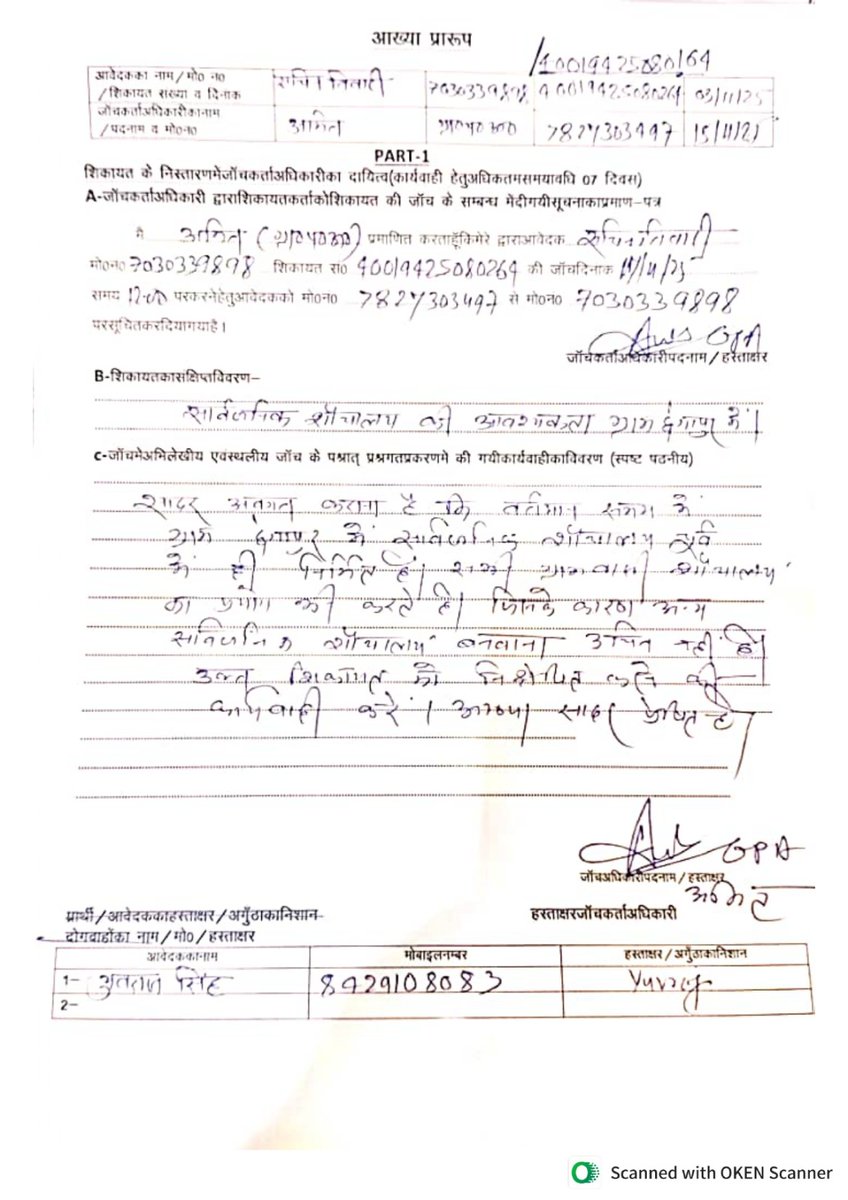 आख्या प्रारूप
/40019425080264
आवेदकका नाम/मो0 न0 /शिकायत संख्या व दिनाक सचिन तिवारी 7030339898 40019425080264 03/11/25
जॉचकर्ताअधिकारीकानाम /पदनाम व मो0न0 अमित ग्रा0पं0अ0 7827303497 15/11/25
PART-1
शिकायत के निस्तारणमेंजॉचकर्ताअधिकारीका दायित्व(कार्यवाही हेतुअधिकतमसमयावधि 07 दिवस)
A-जॉचकर्ताअधिकारी द्वाराशिकायतकर्ताकोशिकायत की जॉच के सम्बन्ध मेंदीगयीसूचनाकाप्रमाण-पत्र
मै अमित (ग्रा0पं0अ0) प्रमाणित करताहूँकिमेरे द्वाराआवेदक सचिन तिवारी
मो0न0 7030339898 शिकायत सं0 40019425080264 की जॉचदिनाक
समय 12:00 परकरनेहेतुआवेदकको मो0न0 7827303497 से मो0न0 7030339898
परसूचितकरदियागयाहै।
GPA
जॉचकर्ताअधिकारीपदनाम/हस्ताक्षर
B-शिकायतकासक्षिप्तविवरण-
सार्वजनिक शौचालय की आवश्यकता ग्राम में।
c-जॉचमेअभिलेखीय एवस्थलीय जॉच के पश्रात् प्रश्नगतप्रकरणमे की गयीकार्यवाहीकाविवरण (स्पष्ट पठनीय)
सादर अवगत कराना है कि वर्तमान समय में
ग्राम में सार्वजनिक शौचालय पूर्व
में ही निर्मित है। सभी ग्रामवासी शौचालय
का प्रयोग भी करते है। जिसके कारण अन्य
सार्वजनिक शौचालय बनवाना उचित नहीं है।
उक्त शिकायत को निक्षेपित करने की
कार्यवाही करें। आख्या सादर प्रेषित है।
GPA
जॉचअधिकारीपदनाम/हस्ताक्षर
अमित
प्रार्थी/आवेदककाहस्ताक्षर/अगुँठाकानिशान-
हस्ताक्षरजॉचकर्ताअधिकारी
दोगवाहोंका नाम/मो0/हस्ताक्षर
आवेदककानाम मोबाइलनम्बर हस्ताक्षर/अगुँठाकानिशान
1- युवराज सिंह 8429108083 Yuvraj
2-
Scanned with OKEN Scanner